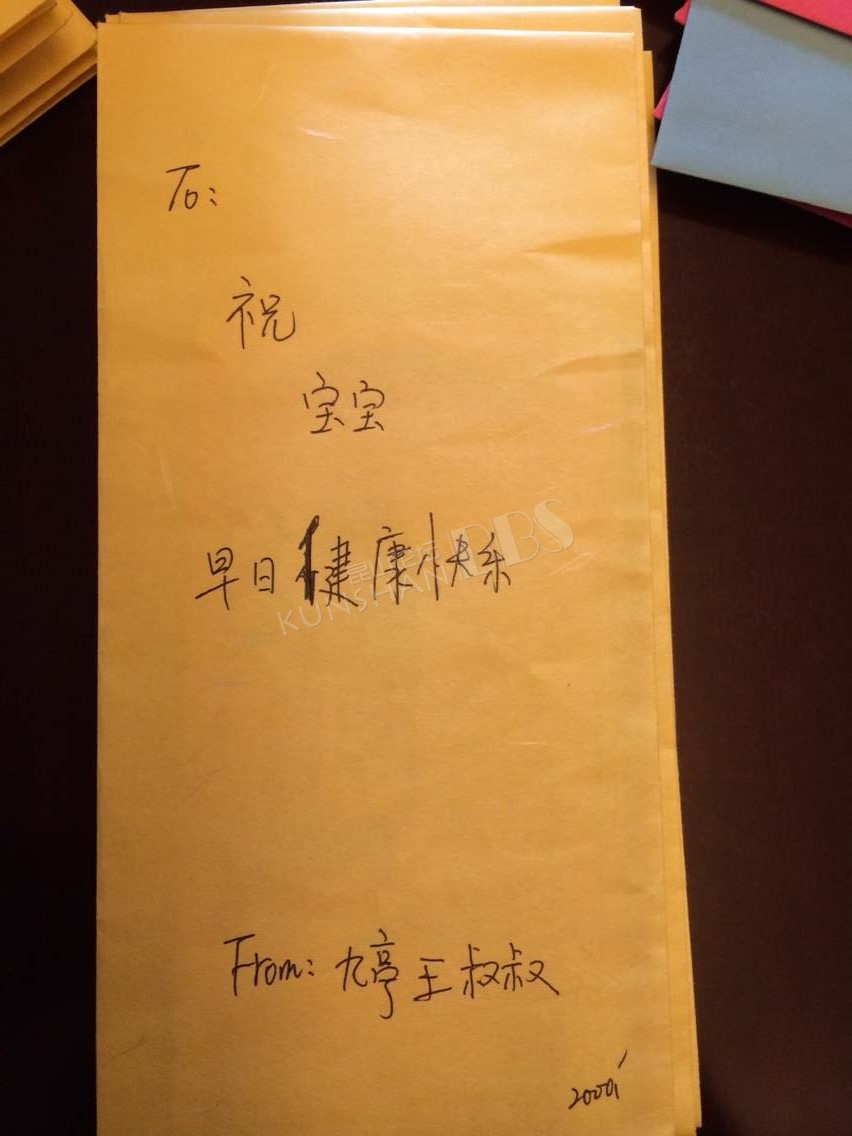 To:
祝
宝宝
早日健康快乐
From: 九亭王叔叔